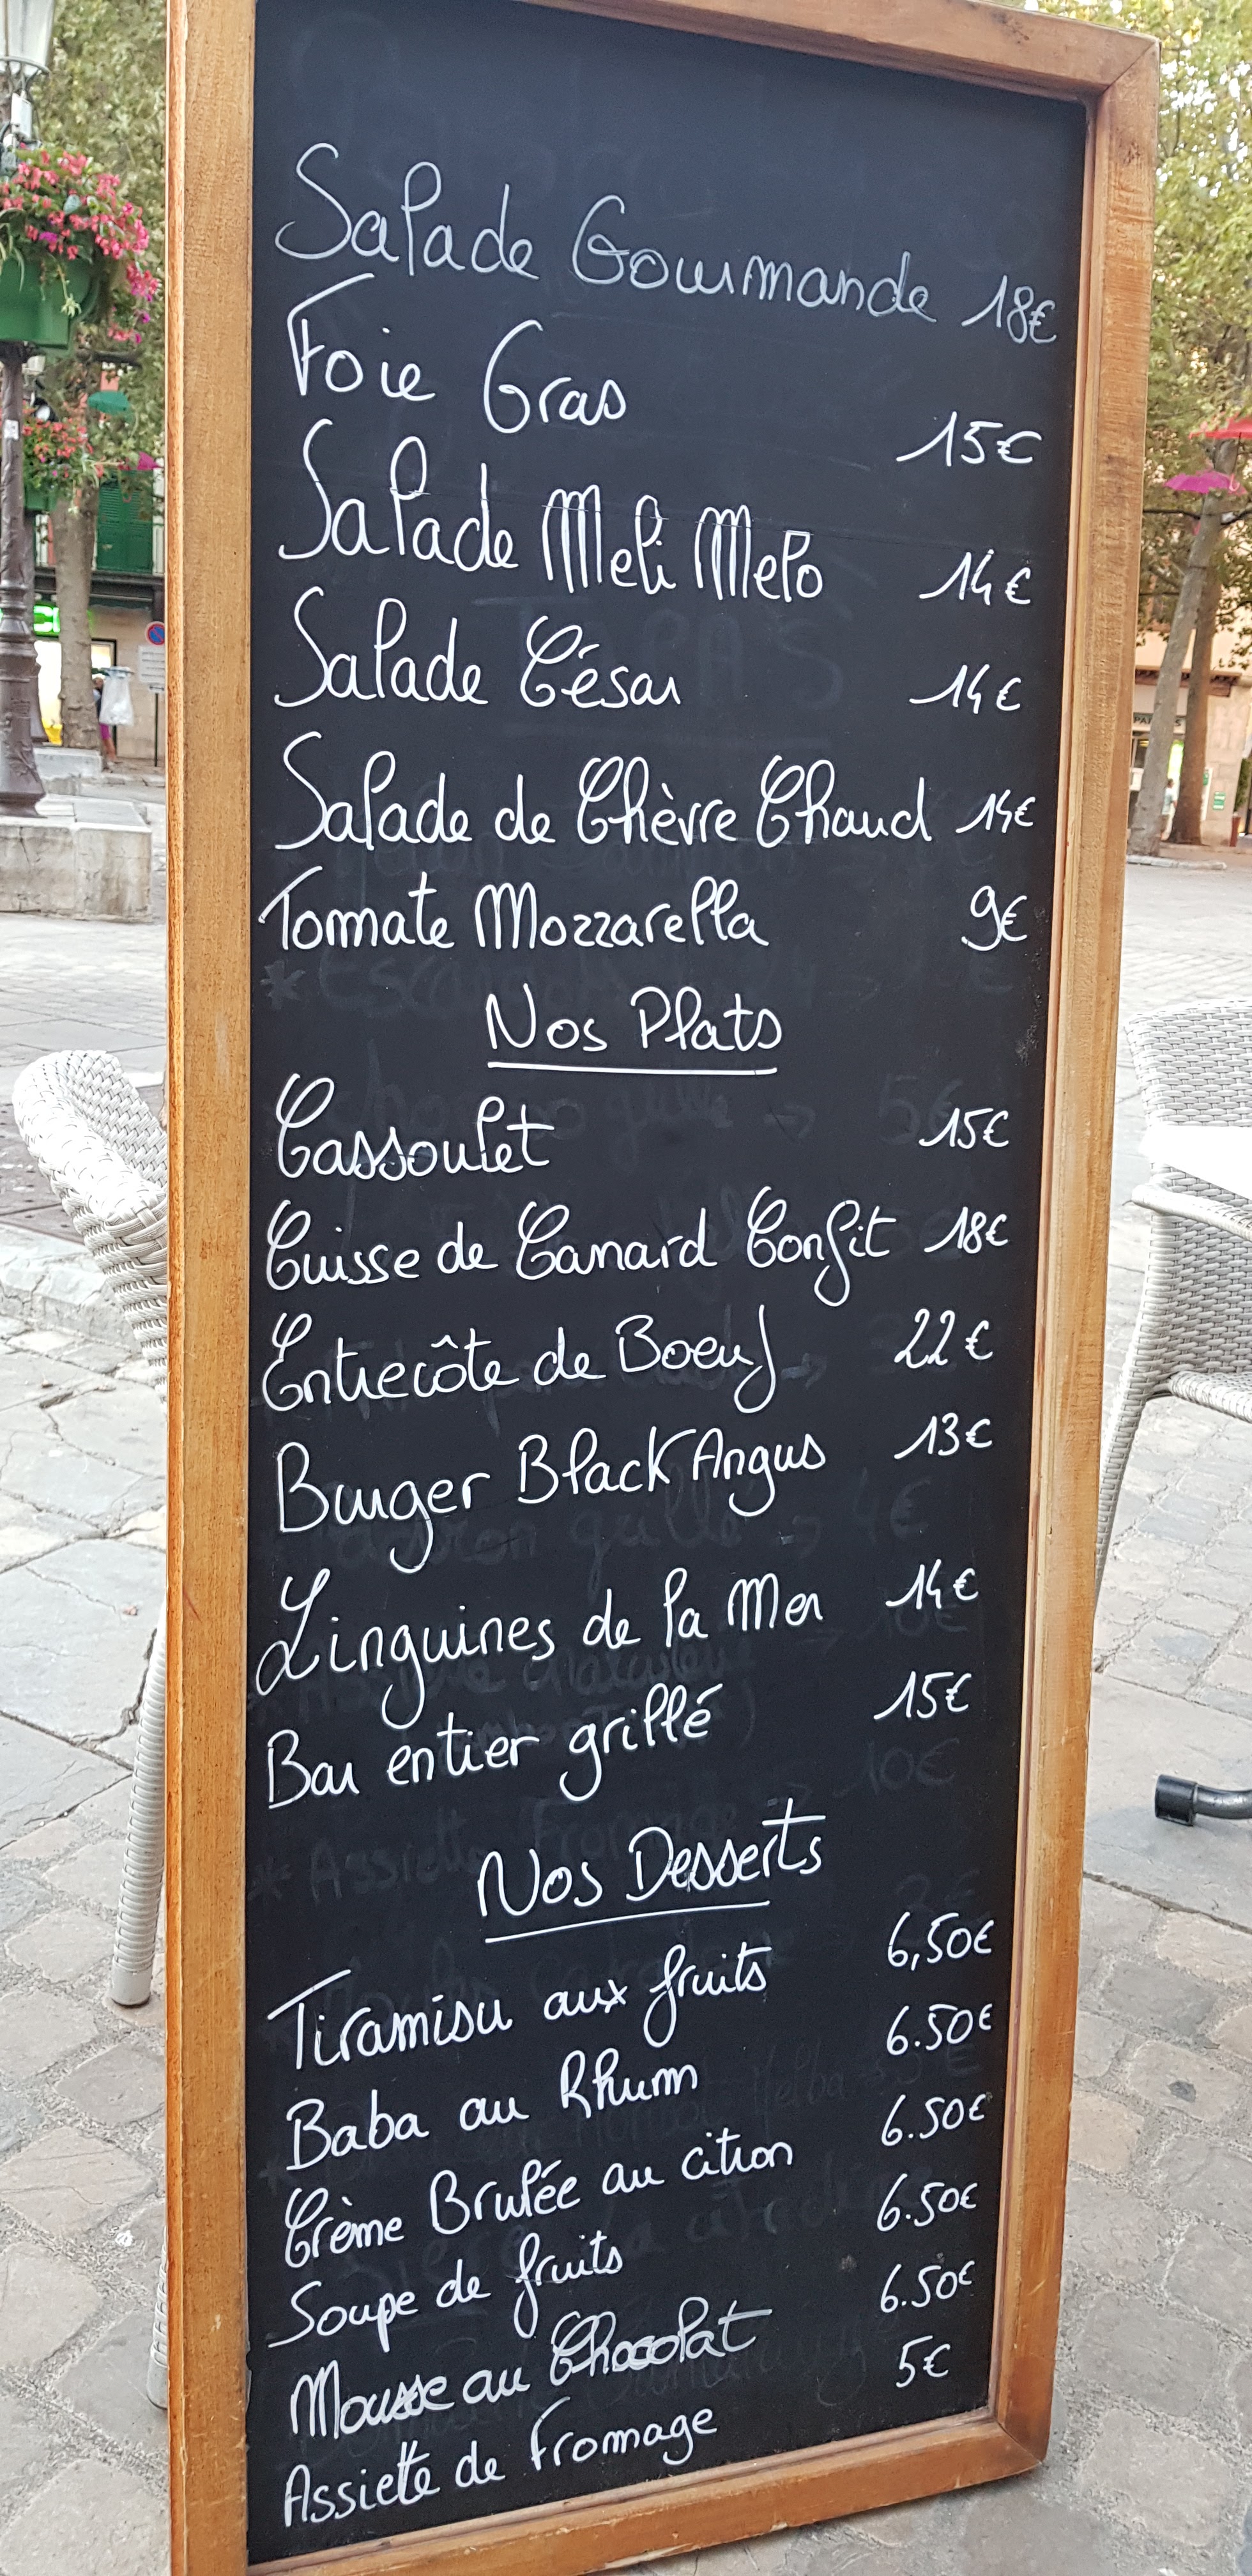 Salade Gourmande 18€
Foie Gras 15€
Salade Meli Melo 14€
Salade César 14€
Salade de Chèvre Chaud 14€
Tomate Mozzarella 9€
Nos Plats
Cassoulet 15€
Cuisse de Canard Confit 18€
Entrecôte de Boeuf 22€
Burger Black Angus 13€
Linguines de la Mer 14€
Bar entier grillé 15€
Nos Desserts
Tiramisu aux fruits 6,50€
Baba au Rhum 6.50€
Crème Brulée au citron 6.50€
Soupe de fruits 6.50€
Mousse au Chocolat 6.50€
Assiette de Fromage 5€